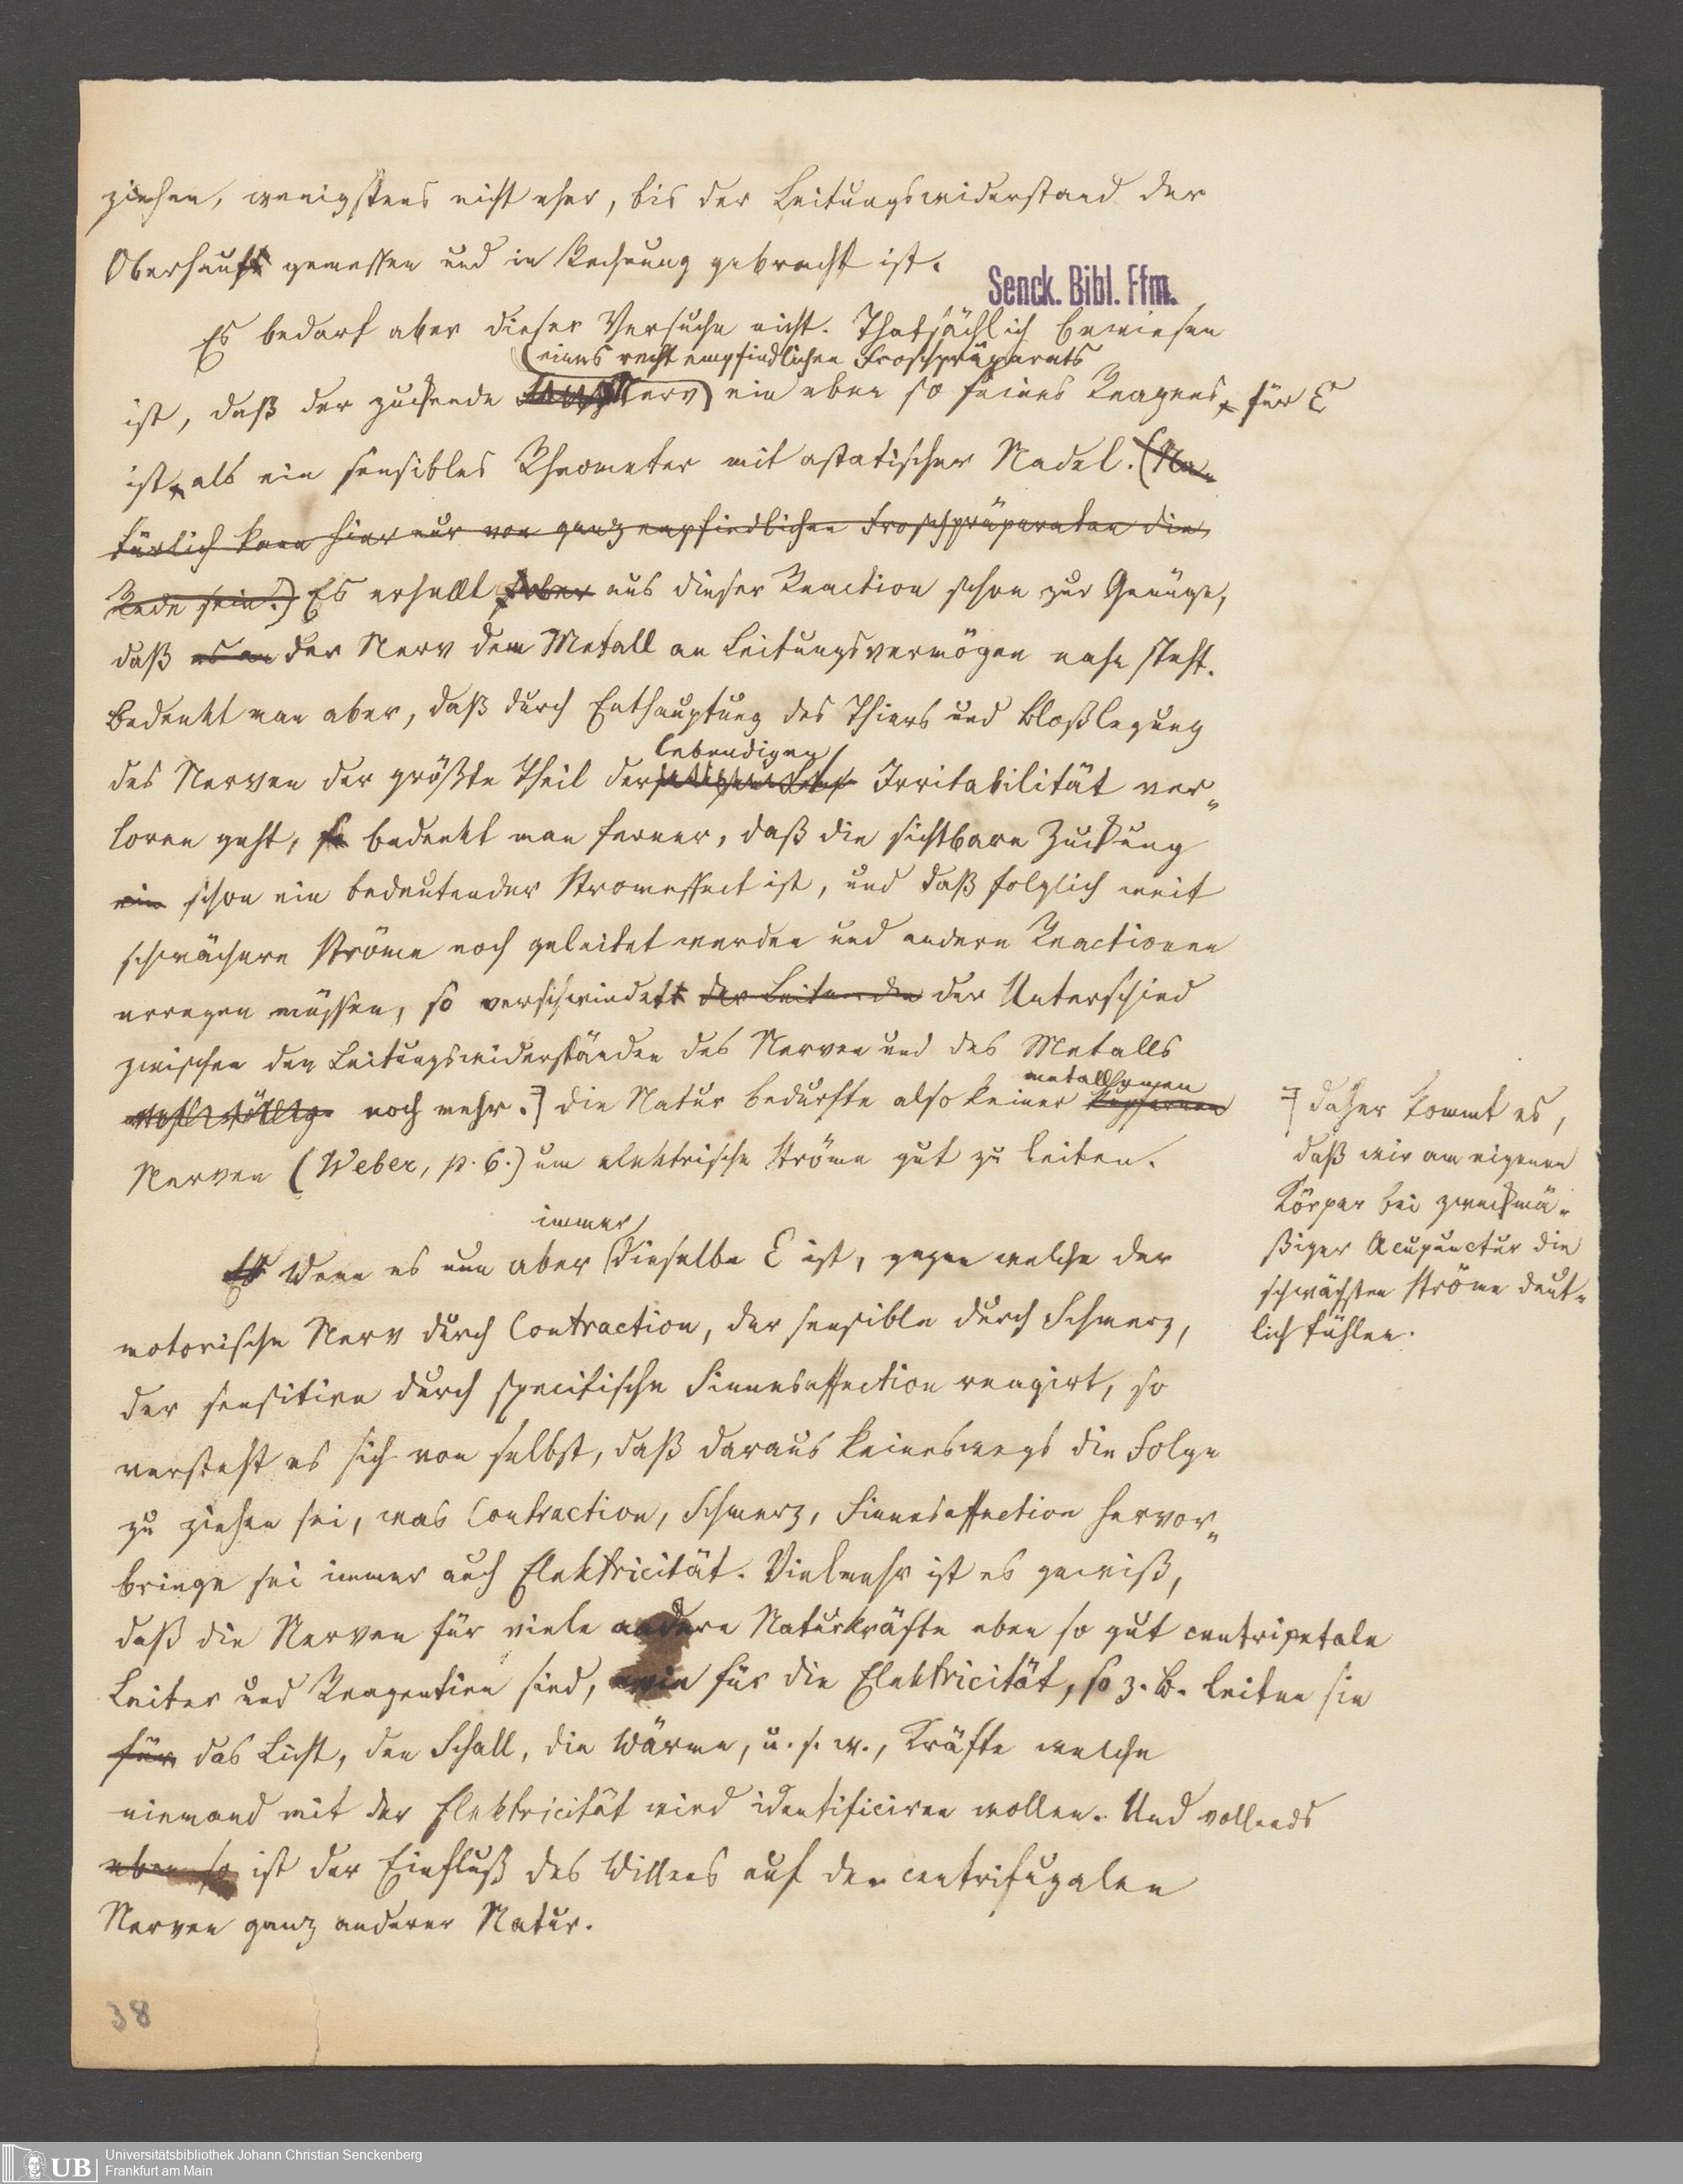 ziehen, wenigstens nicht eher, bis der Leitungswiderstand der
Oberhaut gemessen und in Rechnung gebracht ist.
Senck. Bibl. Ffm.
Es bedarf aber dieser Versuche nicht. Thatsächlich bewiesen
eines recht empfindlichen Froschpräparats
ist, daß der zuckende Nerv ein eben so feines Reagens, für E
ist, als ein sensibles Rheometer mit astatischer Nadel. (Na-
türlich kann hier nur von ganz empfindlichen Froschpräparaten die
Rede sein.) Es erhellt aber aus dieser Reaction schon zur Genüge,
daß es an der Nerv dem Metall an Leitungsvermögen nahe steht.
Bedenkt man aber, daß durch Enthauptung des Thiers und Bloßlegung
lebendigen
des Nerven der größte Theil der Irritabilität ver-
loren geht, so bedenkt man ferner, daß die sichtbare Zuckung
ein schon ein bedeutender Stromeffect ist, und daß folglich weit
schwächere Ströme noch geleitet werden und andere Reactionen
erregen müssen, so verschwindet der Leitende der Unterschied
zwischen den Leitungswiderständen des Nerven und des Metalls
metallhenen
noch mehr.⁊ die Natur bedurfte also keiner kupfernen
Nerven (Weber, p. 6.) um elektrische Ströme gut zu leiten.
immer
Es Wenn es nun aber dieselbe E ist, gegen welche der
motorische Nerv durch Contraction, der sensible durch Schmerz,
der sensitive durch specifische Sinnesaffection reagirt, so
versteht es sich von selbst, daß daraus keineswegs die Folge
zu ziehen sei, was Contraction, Schmerz, Sinnesaffection hervor-
bringe sei immer auch Elektricität. Vielmehr ist es gewiß,
daß die Nerven für viele andere Naturkräfte eben so gut centripetale
Leiter und Reagentien sind, wie für die Elektricität, so z. B. leiten sie
für das Licht, den Schall, die Wärme, u. s. w., Kräfte welche
niemand mit der Elektricität wird identificiren wollen. Und vollends
eben so ist der Einfluß des Willens auf den centrifugalen
Nerven ganz anderer Natur.
⁊ daher kommt es,
daß wir am eigenen
Körper bei zweckmä-
ßiger Acupunctur die
schwächsten Ströme deut-
lich fühlen.
38
UB
Universitätsbibliothek Johann Christian Senckenberg
Frankfurt am Main